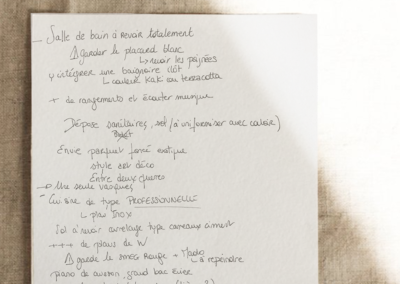 — Salle de bain à revoir totalement
⚠ garder le placard blanc
↳ revoir les poignées
↳ intégrer une baignoire îlot
↳ couleur Kaki ou terracotta
+ de rangements et écouter musique
Dépose sanitaires, sol (à uniformiser avec couloir)
Envie parquet foncé exotique
style art déco
Entre deux guerres
→ Une seule vasques
— Cuisine de type PROFESSIONNELLE
↳ pas Inox
Sol à revoir carrelage type carreaux ciment
+++ de plans de W
⚠ garde le smeg Rouge +
↳ à repeindre
piano de cuisson, grand bac évier